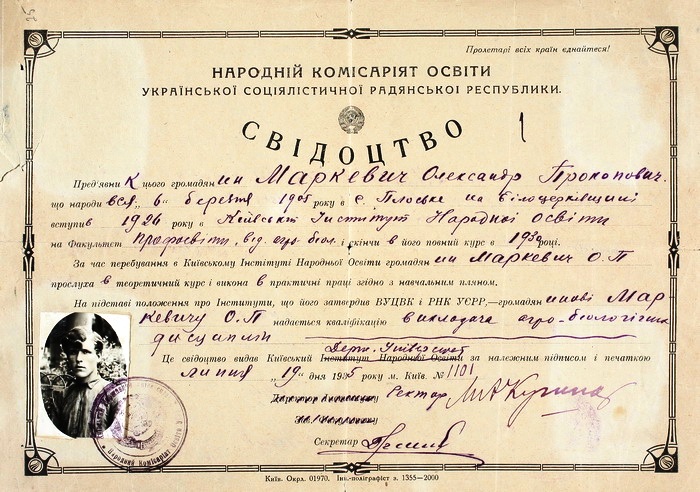 25
Пролетарі всіх країн єднайтеся!
НАРОДНІЙ КОМІСАРІЯТ ОСВІТИ
УКРАЇНСЬКОЇ СОЦІЯЛІСТИЧНОЇ РАДЯНСЬКОЇ РЕСПУБЛИКИ.
СВІДОЦТВО
1
Пред'явник цього громадянин Маркевич Олександр Прокопович
що народився "6" березня 1905 року в с. Плоське на Білоцерківщині
вступив 1926 року в Київський Інститут Народної Освіти
на Факультет Профосвіти, від. агро-біол. і скінчив його повний курс в 1930 році.
За час перебування в Київському Інституті Народної Освіти громадянин Маркевич О. П
прослухав теоретичний курс і виконав практичні праці згідно з навчальним пляном.
На підставі положення про Інститути, що його затвердив ВУЦВК і РНК УСРР,—громадянинові Мар-
кевичу О. П надається кваліфікацію викладача агро-біологічних
дисциплін
Держ. Університет
Це свідоцтво видав Київський Інститут Народної Освіти за належним підписом і печаткою
липня "19" дня 1935 року м. Київ. №1101
Ректор
Секретар
Народній Комісаріят Освіти
Київ. Окрл. 01970. Інк.-поліграфіст з. 1355—2000